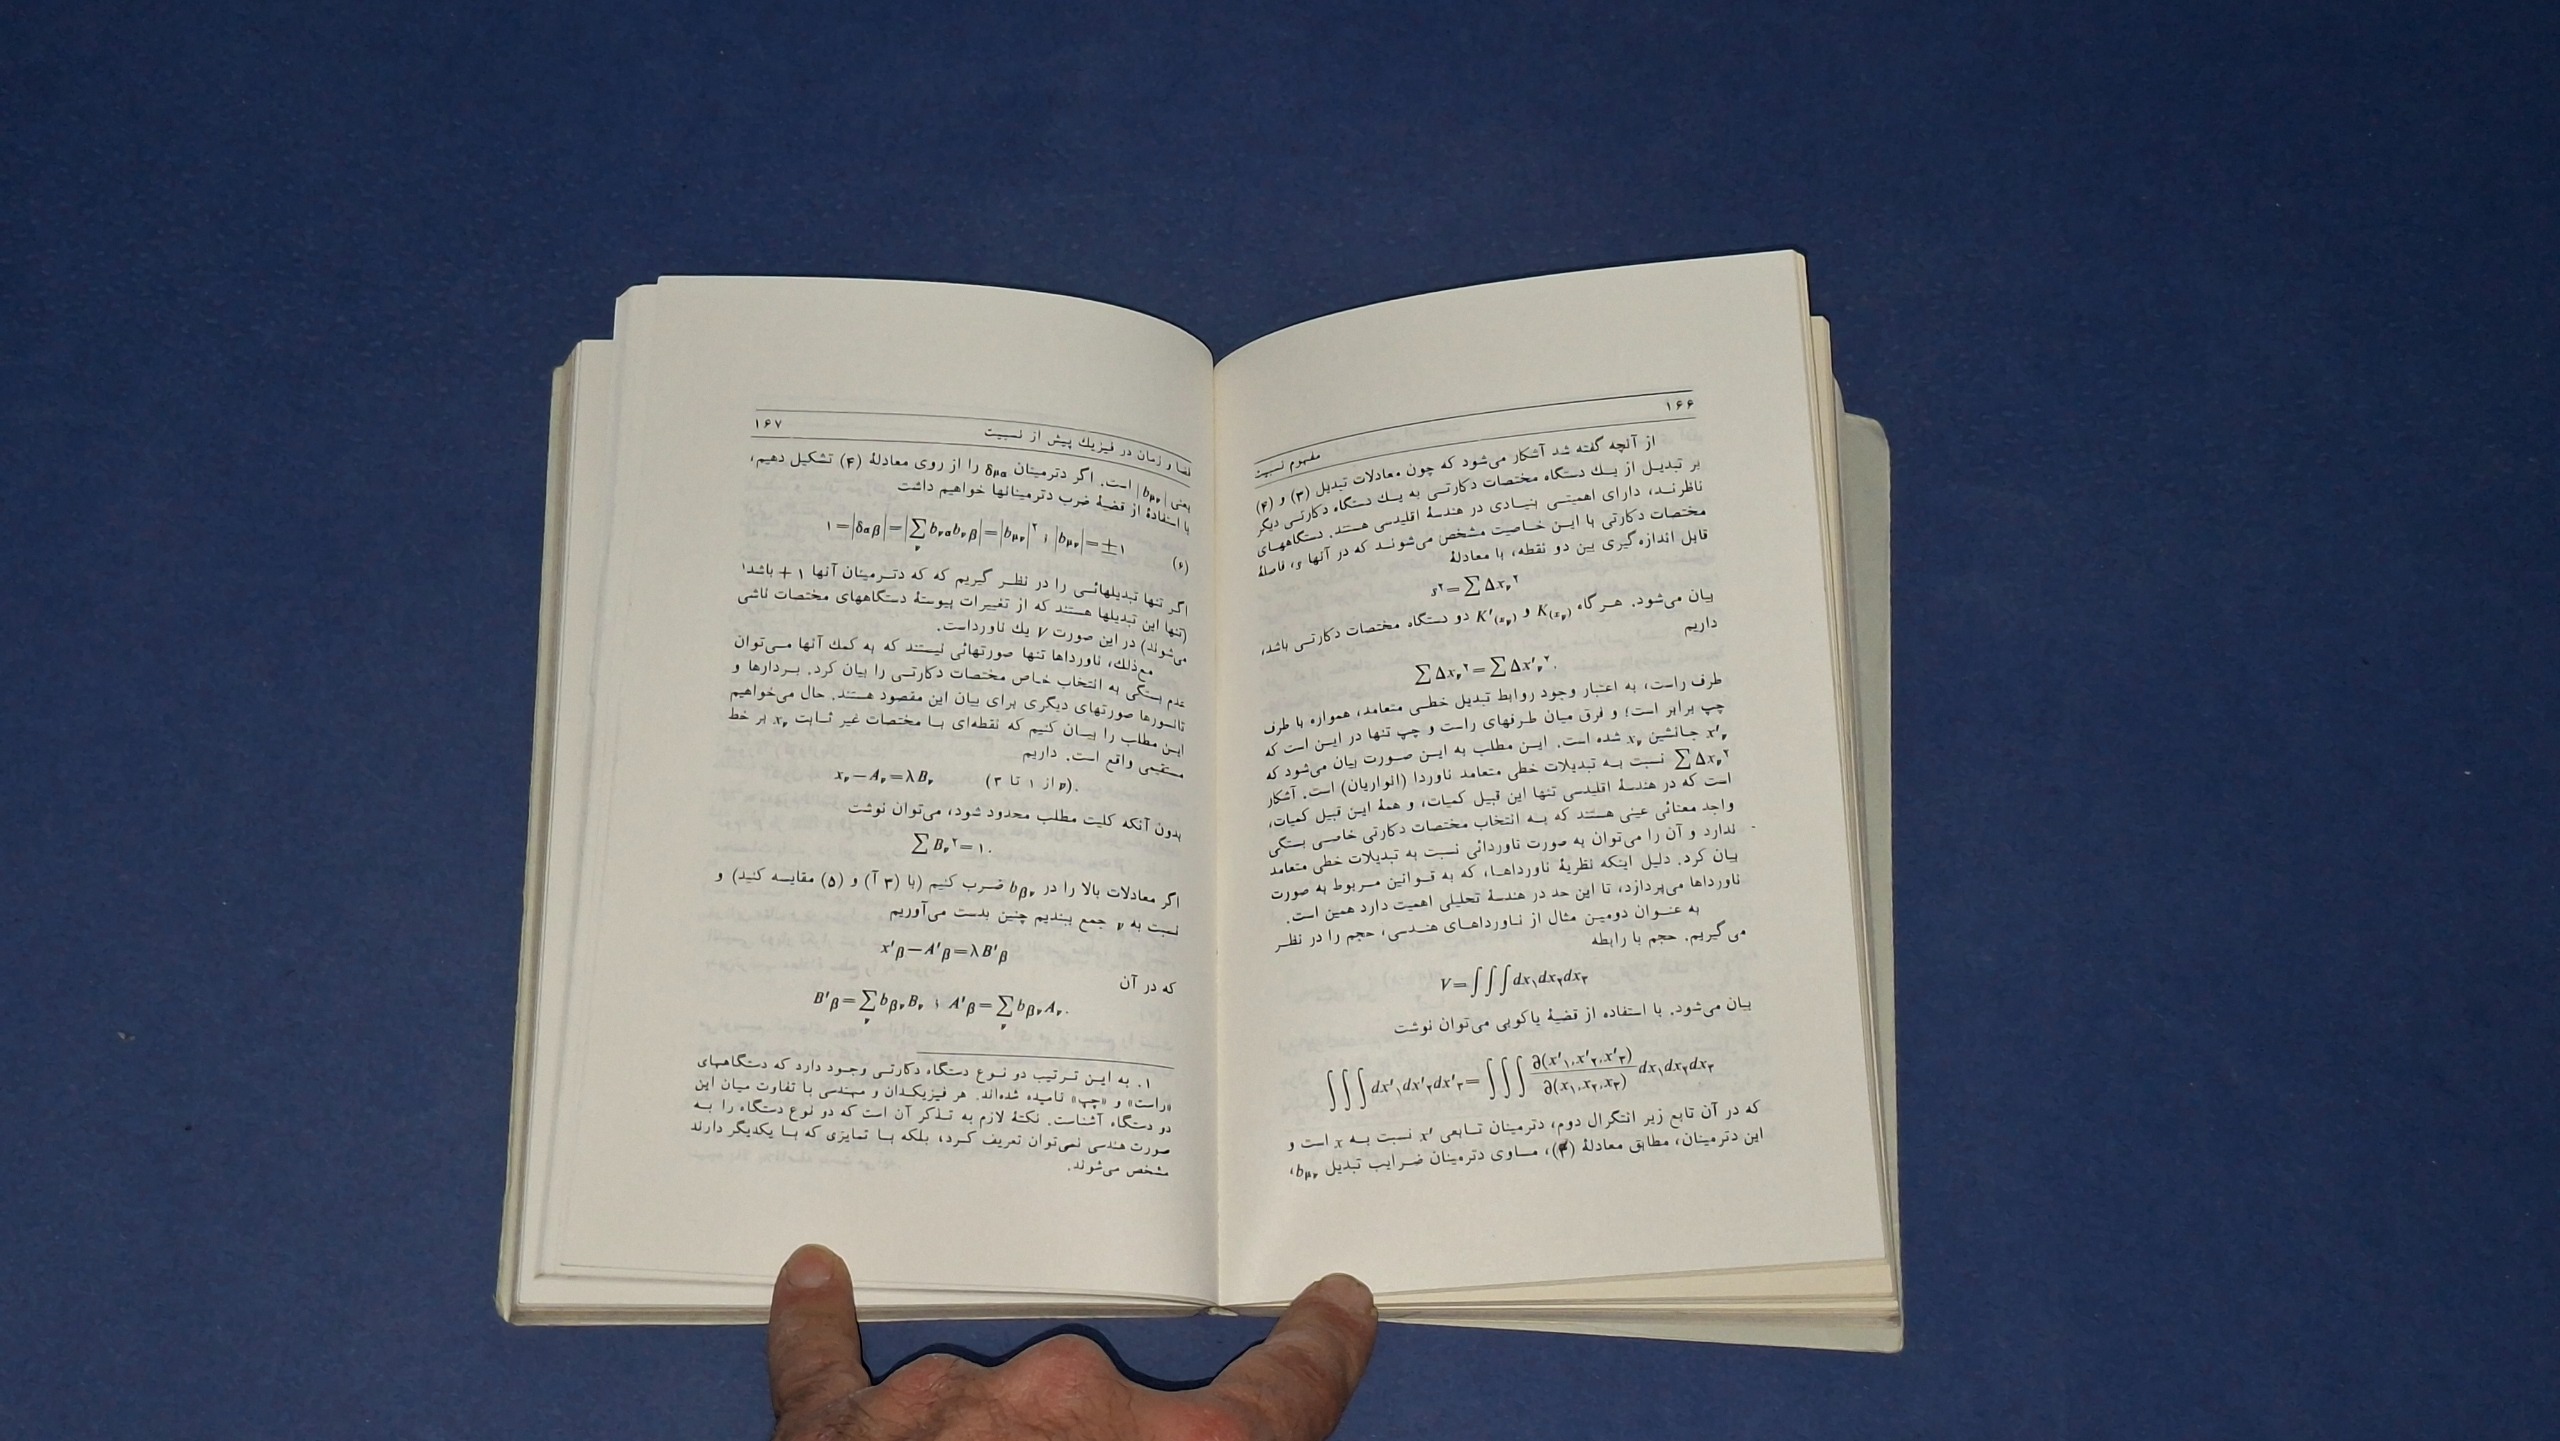 ۱۶۶
مفهوم نسبیت
از آنچه گفته شد آشکار می‌شود که چون معادلات تبدیل (۳) و (۴)
بر تبدیل از یك دستگاه مختصات دکارتی به یك دستگاه دکارتی دیگر
ناظرند، دارای اهمیتی بنیادی در هندسهٔ اقلیدسی هستند. دستگاههای
مختصات دکارتی با این خاصیت مشخص می‌شوند که در آنها s، فاصلهٔ
قابل اندازه‌گیری بین دو نقطه، با معادلهٔ
s²=∑Δxᵥ²
بیان می‌شود. هرگاه K(xᵥ) و K′(xᵥ) دو دستگاه مختصات دکارتی باشد،
داریم
∑Δxᵥ²=∑Δx′ᵥ².
طرف راست، به اعتبار وجود روابط تبدیل خطی متعامد، همواره با طرف
چپ برابر است؛ و فرق میان طرفهای راست و چپ تنها در این است که
x′ᵥ جانشین xᵥ شده است. این مطلب به این صورت بیان می‌شود که
∑Δxᵥ² نسبت به تبدیلات خطی متعامد ناوردا (انواریان) است. آشکار
است که در هندسهٔ اقلیدسی تنها این قبیل کمیات، و همهٔ این قبیل کمیات،
واجد معنائی عینی هستند که به انتخاب مختصات دکارتی خاصی بستگی
ندارد و آن را می‌توان به صورت ناوردائی نسبت به تبدیلات خطی متعامد
بیان کرد. دلیل اینکه نظریهٔ ناورداها، که به قوانین مربوط به صورت
ناورداها می‌پردازد، تا این حد در هندسهٔ تحلیلی اهمیت دارد همین است.
به عنوان دومین مثال از ناورداهای هندسی، حجم را در نظر
می‌گیریم. حجم با رابطه
V=∫∫∫dx₁dx₂dx₃
بیان می‌شود. با استفاده از قضیهٔ یاکوبی می‌توان نوشت
∫∫∫dx′₁dx′₂dx′₃=∫∫∫∂(x′₁,x′₂,x′₃)/∂(x₁,x₂,x₃) dx₁dx₂dx₃
که در آن تابع زیر انتگرال دوم، دترمینان تابعی x′ نسبت به x است و
این دترمینان، مطابق معادلهٔ (۴)، مساوی دترمینان ضرایب تبدیل bμᵥ،
فضا و زمان در فیزیك پیش از نسبیت
۱۶۷
یعنی |bμᵥ| است. اگر دترمینان δμα را از روی معادلهٔ (۴) تشکیل دهیم،
با استفادهٔ از قضیهٔ ضرب دترمینانها خواهیم داشت
(۶) ۱=|δαβ|=|∑bᵥαbᵥβ|=|bμᵥ|² ؛ |bμᵥ|=±۱
اگر تنها تبدیلهائی را در نظر گیریم که که دترمینان آنها ۱+ باشد۱
(تنها این تبدیلها هستند که از تغییرات پیوستهٔ دستگاههای مختصات ناشی
می‌شوند) در این صورت V یك ناورداست.
مع‌ذلك، ناورداها تنها صورتهائی نیستند که به کمك آنها می‌توان
عدم بستگی به انتخاب خاص مختصات دکارتی را بیان کرد. بردارها و
تانسورها صورتهای دیگری برای بیان این مقصود هستند. حال می‌خواهیم
این مطلب را بیان کنیم که نقطه‌ای با مختصات غیر ثابت xᵥ بر خط
مستقیمی واقع است. داریم
xᵥ−Aᵥ=λBᵥ (ᵥ از ۱ تا ۳).
بدون آنکه کلیت مطلب محدود شود، می‌توان نوشت
∑Bᵥ²=۱.
اگر معادلات بالا را در bβᵥ ضرب کنیم (با (۳ آ) و (۵) مقایسه کنید) و
نسبت به ᵥ جمع ببندیم چنین بدست می‌آوریم
x′β−A′β=λB′β
که در آن
B′β=∑bβᵥBᵥ ؛ A′β=∑bβᵥAᵥ.
۱. به این ترتیب دو نوع دستگاه دکارتی وجود دارد که دستگاههای
«راست» و «چپ» نامیده شده‌اند. هر فیزیکدان و مهندسی با تفاوت میان این
دو دستگاه آشناست. نکتهٔ لازم به تذکر آن است که دو نوع دستگاه را به
صورت هندسی نمی‌توان تعریف کرد، بلکه با تمایزی که با یکدیگر دارند
مشخص می‌شوند.